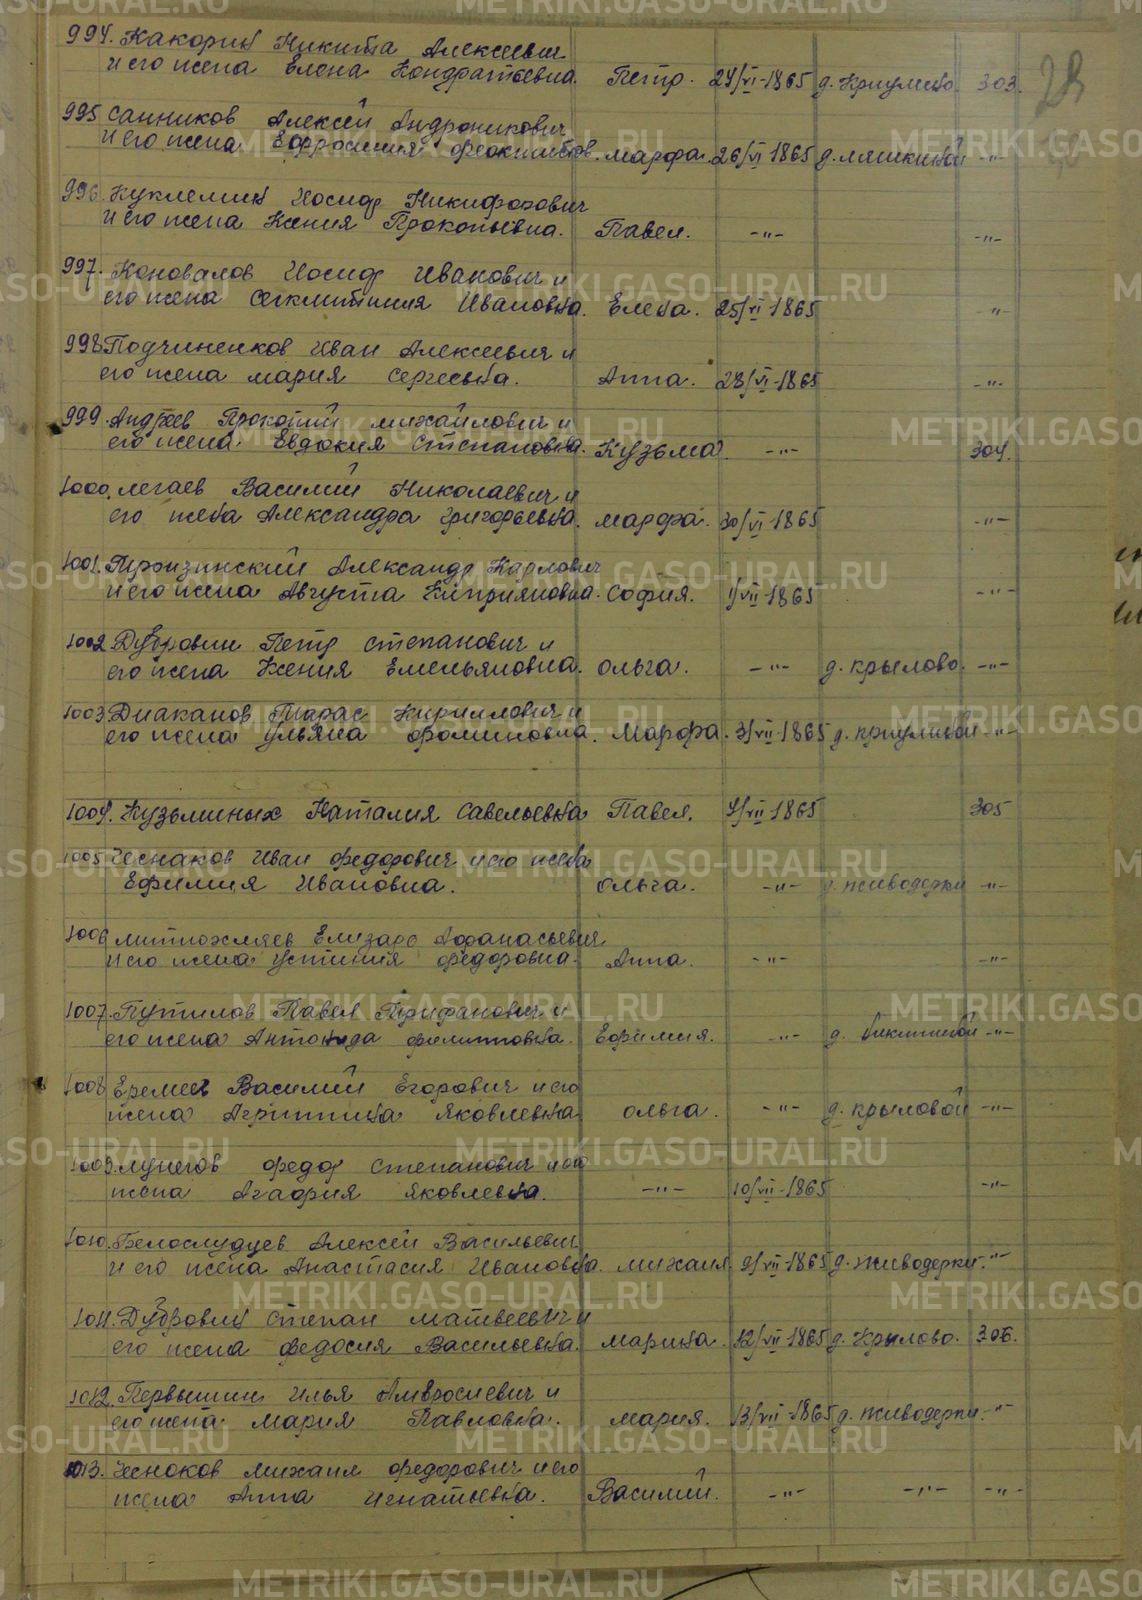 28
994. Какорин Никита Алексеевич
и его жена Елена Кондратьевна. Петр. 24/VI-1865 д. Криулино. 303.
995 Санников Алексей Андроникович
и его жена Ефросиния Феоктистов. Марфа. 26/VI 1865 д. Ляшкиной -"-
996. Куклемин Иосиф Никифорович
и его жена Ксения Прокопьевна. Павел. -"- -"-
997. Коновалов Иосиф Иванович и
его жена Секлитиния Ивановна. Елена. 25/VI 1865 -"-
998. Подчиненков Иван Алексеевич и
его жена Мария Сергеевна. Анна. 28/VI-1865 -"-
999. Андреев Прокопий Михайлович и
его жена Евдокия Степановна. Кузьма. -"- 304.
1000. Легаев Василий Николаевич и
его жена Александра Григорьевна. Марфа. 30/VI-1865 -"-
1001. Тронзинский Александр Карлович
и его жена Августа Киприяновна. София. 1/VII-1865 -"-
1002 Дубровин Петр Степанович и
его жена Ксения Емельяновна. Ольга. -"- д. Крылово. -"-
1003. Диаканов Тарас Кириллович и
его жена Ульяна Фоминовна. Марфа. 3/VII-1865 д. Криулиной -"-
1004. Кузьминых Наталия Савельевна Павел. 4/VII 1865 305
1005. Чеснаков Иван Федорович и его жена
Ефимия Ивановна. Ольга. -"- д. Живодерки -"-
1006 Митюхляев Елизарс Афанасьевич
и его жена Устиния Федоровна. Анна. -"- -"-
1007. Путилов Павел Трифанович и
его жена Антонида Филипповна. Ефимия. -"- д. Бикшиной -"-
1008. Еремеев Василий Егорович и его
жена Агриппина Яковлевна Ольга. -"- д. Крыловой -"-
1009. Лунегов Федор Степанович и его
жена Агафия Яковлевна. -"- 10/VII-1865 -"-
1010. Белослудцев Алексей Васильевич
и его жена Анастасия Ивановна. Михаил 9/VII-1865 д. Живодерки. -"-
1011. Дубровин Степан Матвеевич и
его жена Федосия Васильевна. Марина. 12/VII-1865 д. Крылово. 306.
1012. Первышин Илья Амвросиевич и
его жена Мария Павловна. Мария. 13/VII-1865 д. Живодерки. -"-
1013. Чесноков Михаил Федорович и его
жена Анна Игнатьевна. Василий. -"- -"- -"-
METRIKI.GASO-URAL.RU